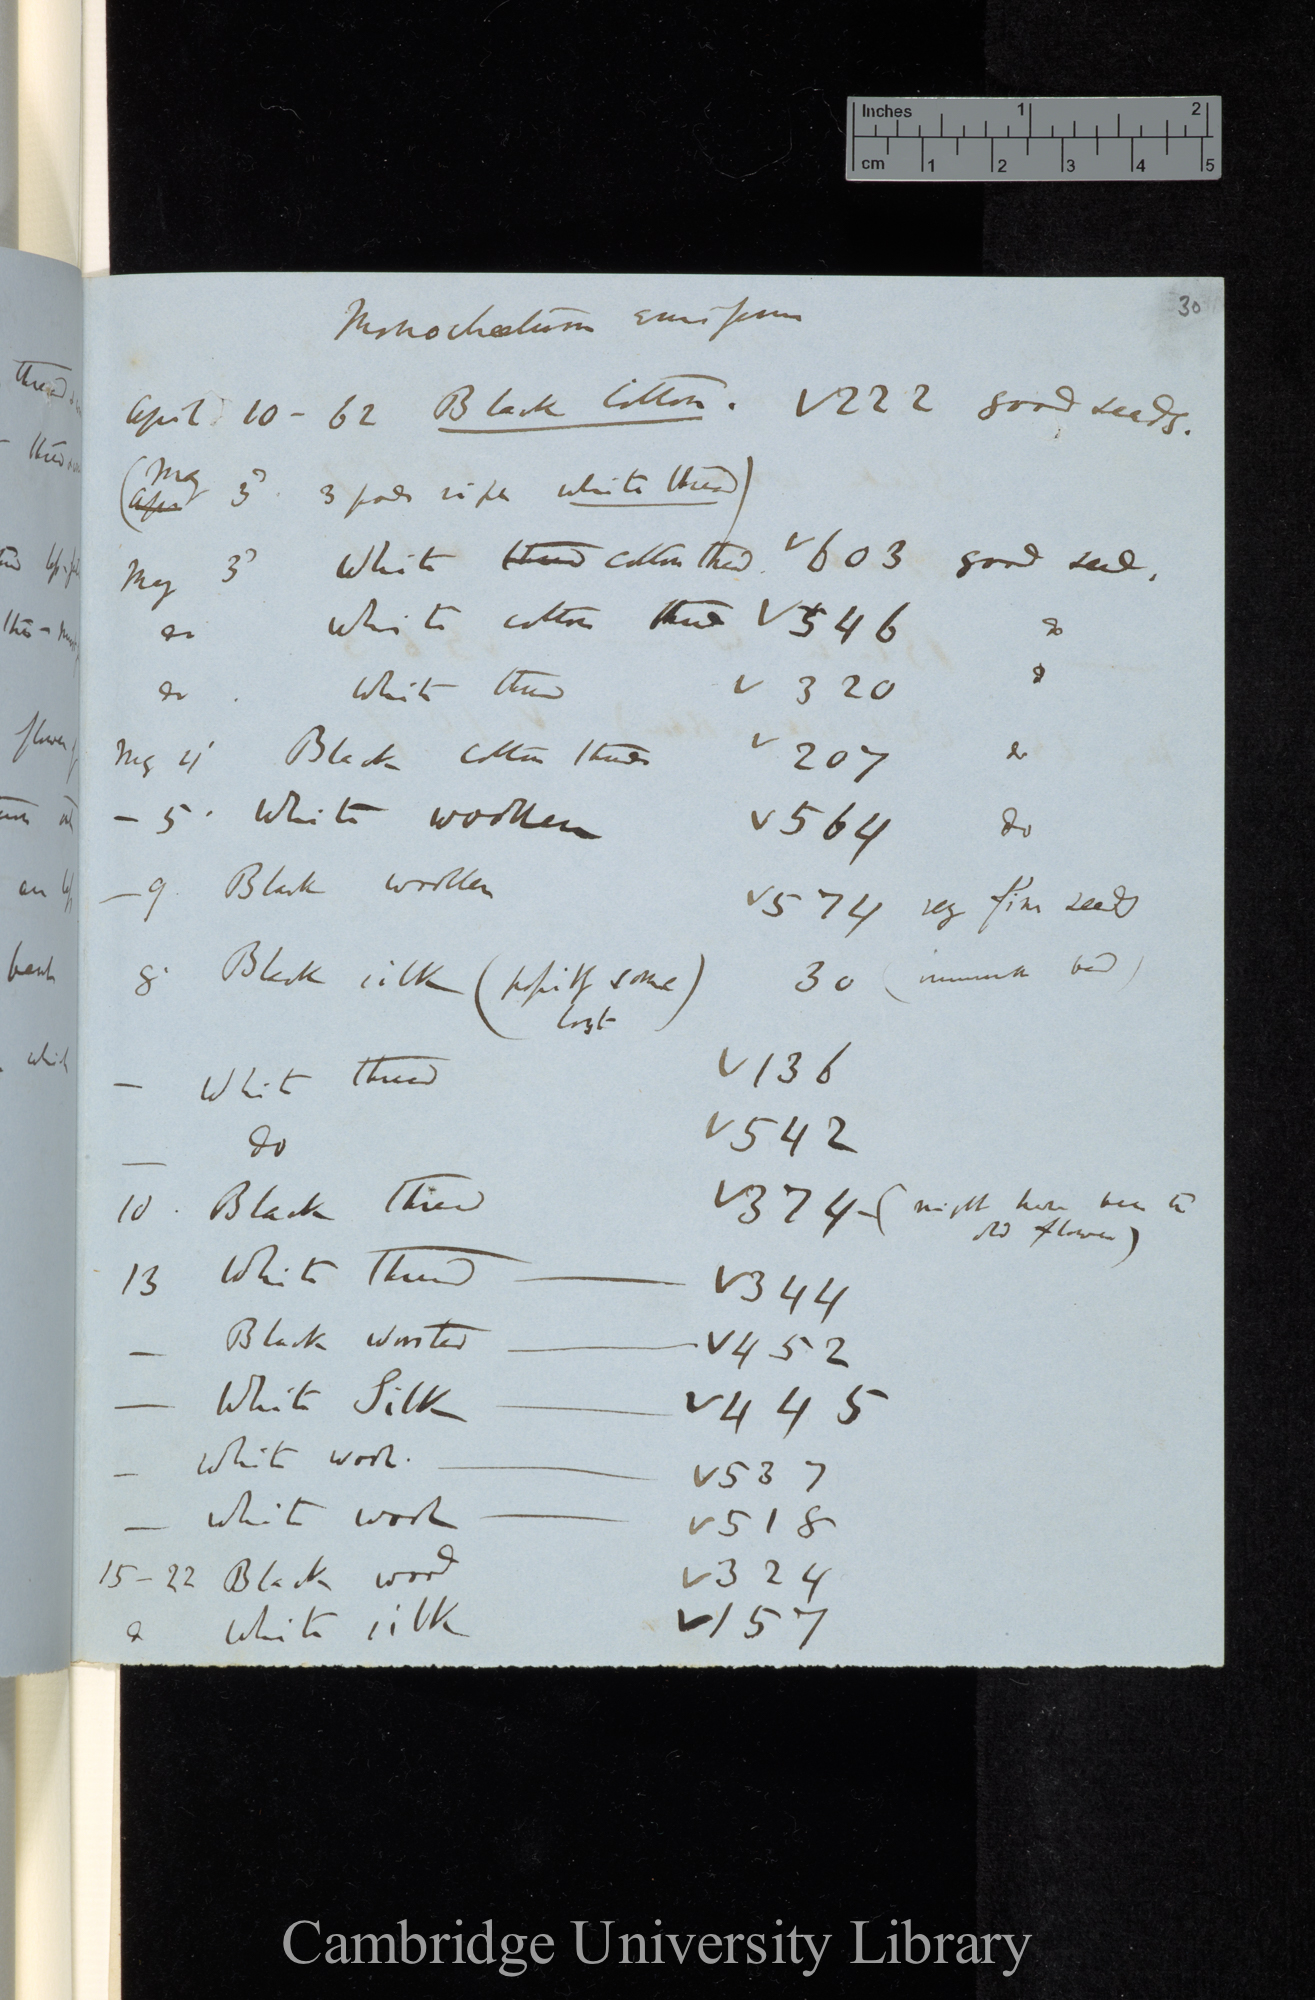 Inches 1 2
cm 1 2 3 4 5
30
Monochaetum ensiferum
April 10 - 62 Black Cotton. √222 good seeds.
(May
April 3d. 3 pods ripe white thread)
May 3d White thread cotton thread. √603 good seed,
do White cotton thread √546 do
do. White thread √ 320 do
May 4' Black cotton thread √207 do
— 5. White woollen √564 do
— 9 Black woollen √574 very fine seeds
8. Black silk (possibly some 30 (immense bad)
lost
— White thread √136
— do √542
10. Black Thread √374 - (might have been to
old flower)
13 White Thread — √344
— Black worsted — √452
— White Silk — √445
— White wool. — √537
— White wool — √518
15-22 Black wool √324
do White silk √157
thread
thread
flower
on
which
Cambridge University Library